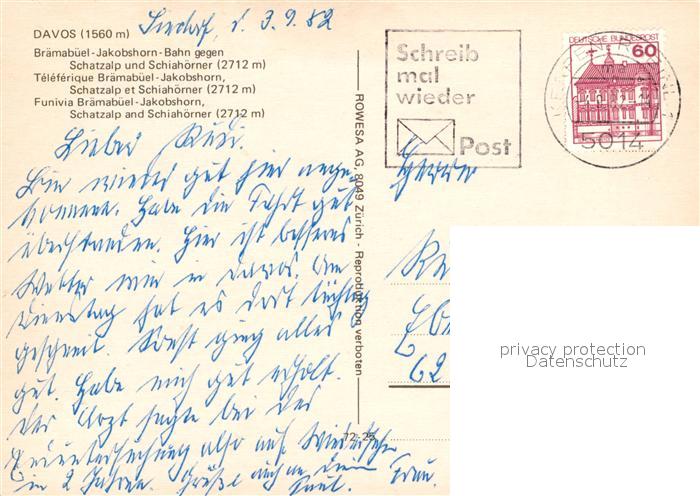 Sindorf, d. 3.9.82
DAVOS (1560 m)
Brämabüel-Jakobshorn-Bahn gegen
Schatzalp und Schiahörner (2712 m)
Téléférique Brämabüel-Jakobshorn,
Schatzalp et Schiahörner (2712 m)
Funivia Brämabüel-Jakobshorn,
Schatzalp and Schiahörner (2712 m)
Lieber Rudi.
Bin wieder gut hier ange-
kommen. Habe die Fahrt gut
überstanden. Hier ist besseres
Wetter wie in Davos. Am
Dienstag hat es dort tüchtig
geschneit. Sonst ging alles
gut. Habe mich gut erholt.
Der Arzt sagte bei der
Untersuchung also auf Wiedersehn
in 2 Jahren. Grüße auch an Deine
Frau. Paul.
ROWESA AG, 8049 Zürich - Reproduktion verboten
72-25
Schreib
mal
wieder
Post
DEUTSCHE BUNDESPOST
60
5014
Herrn
62
privacy protection
Datenschutz